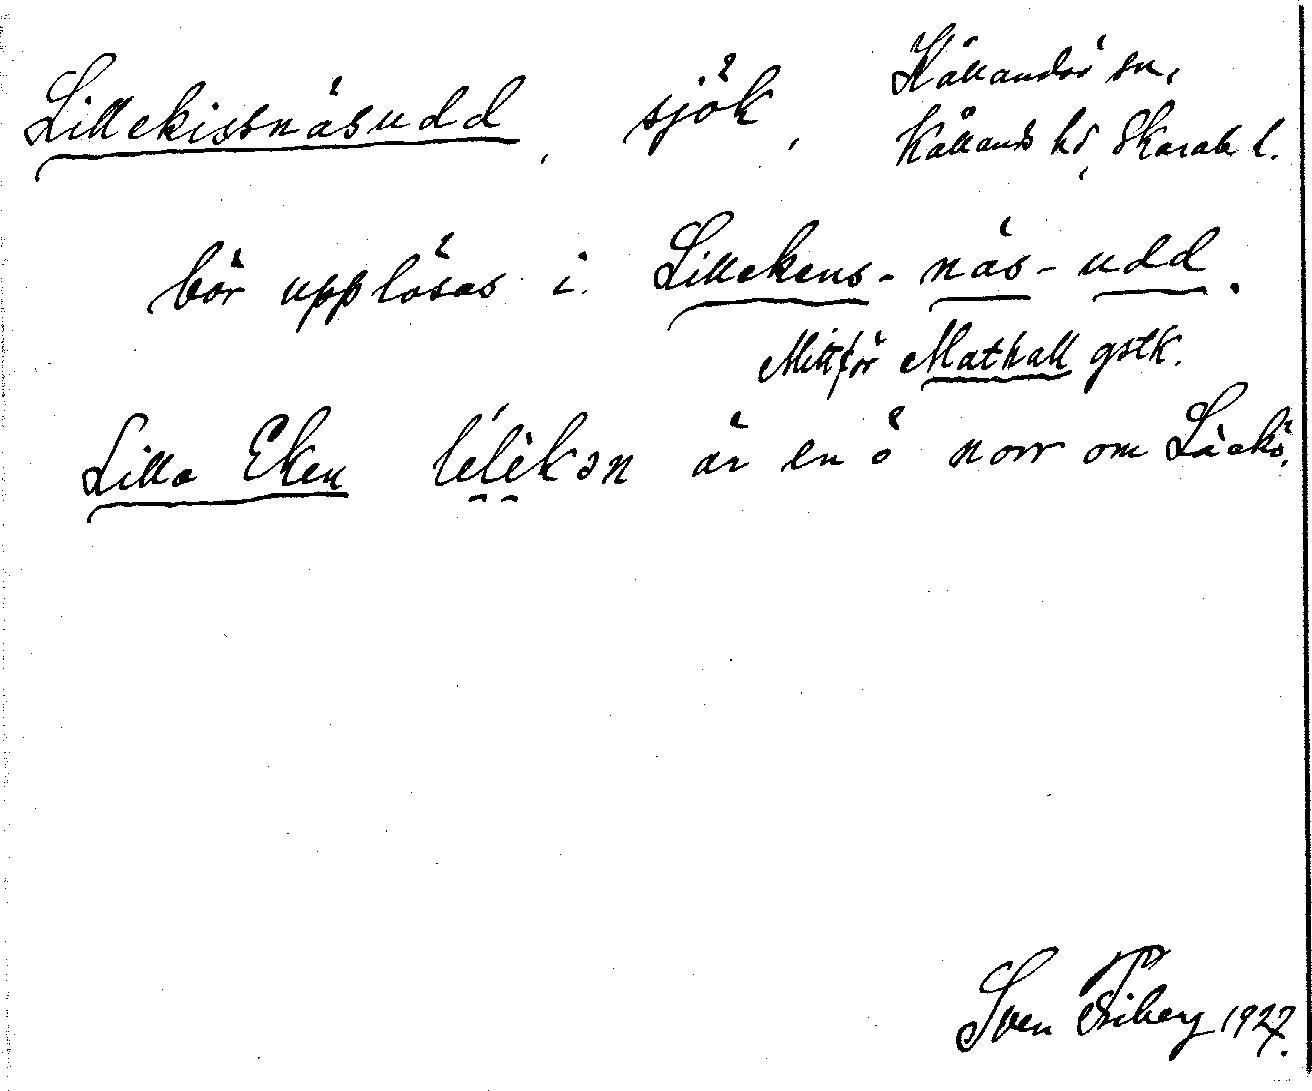 Lillekissnäsudd, sjök, Kållandsö sn,
Kållands hd, Skarab. l.
bör upplösas i Lillekens-näs-udd.
Mittför Mathall gstk.
Lilla Eken léləkən är en ö norr om Läckö.
Sven 1927.